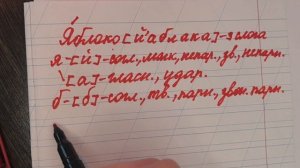 Я́блоко [й'аблака] - 3 слога
я - [й'] - согл., мягк., непар., зв., непарн.
\[а] - гласн., удар.
б - [б] - согл., тв., парн., звон. парн.